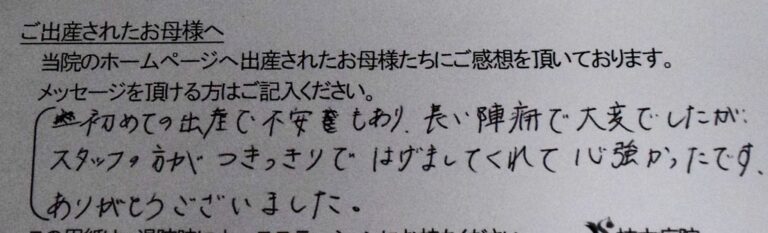 ご出産されたお母様へ
当院のホームページへ出産されたお母様たちにご感想を頂いております。
メッセージを頂ける方はご記入ください。
初めての出産で不安もあり、長い陣痛で大変でしたが、
スタッフの方が つきっきりで はげましてくれて 心強かったです、
ありがとうございました。